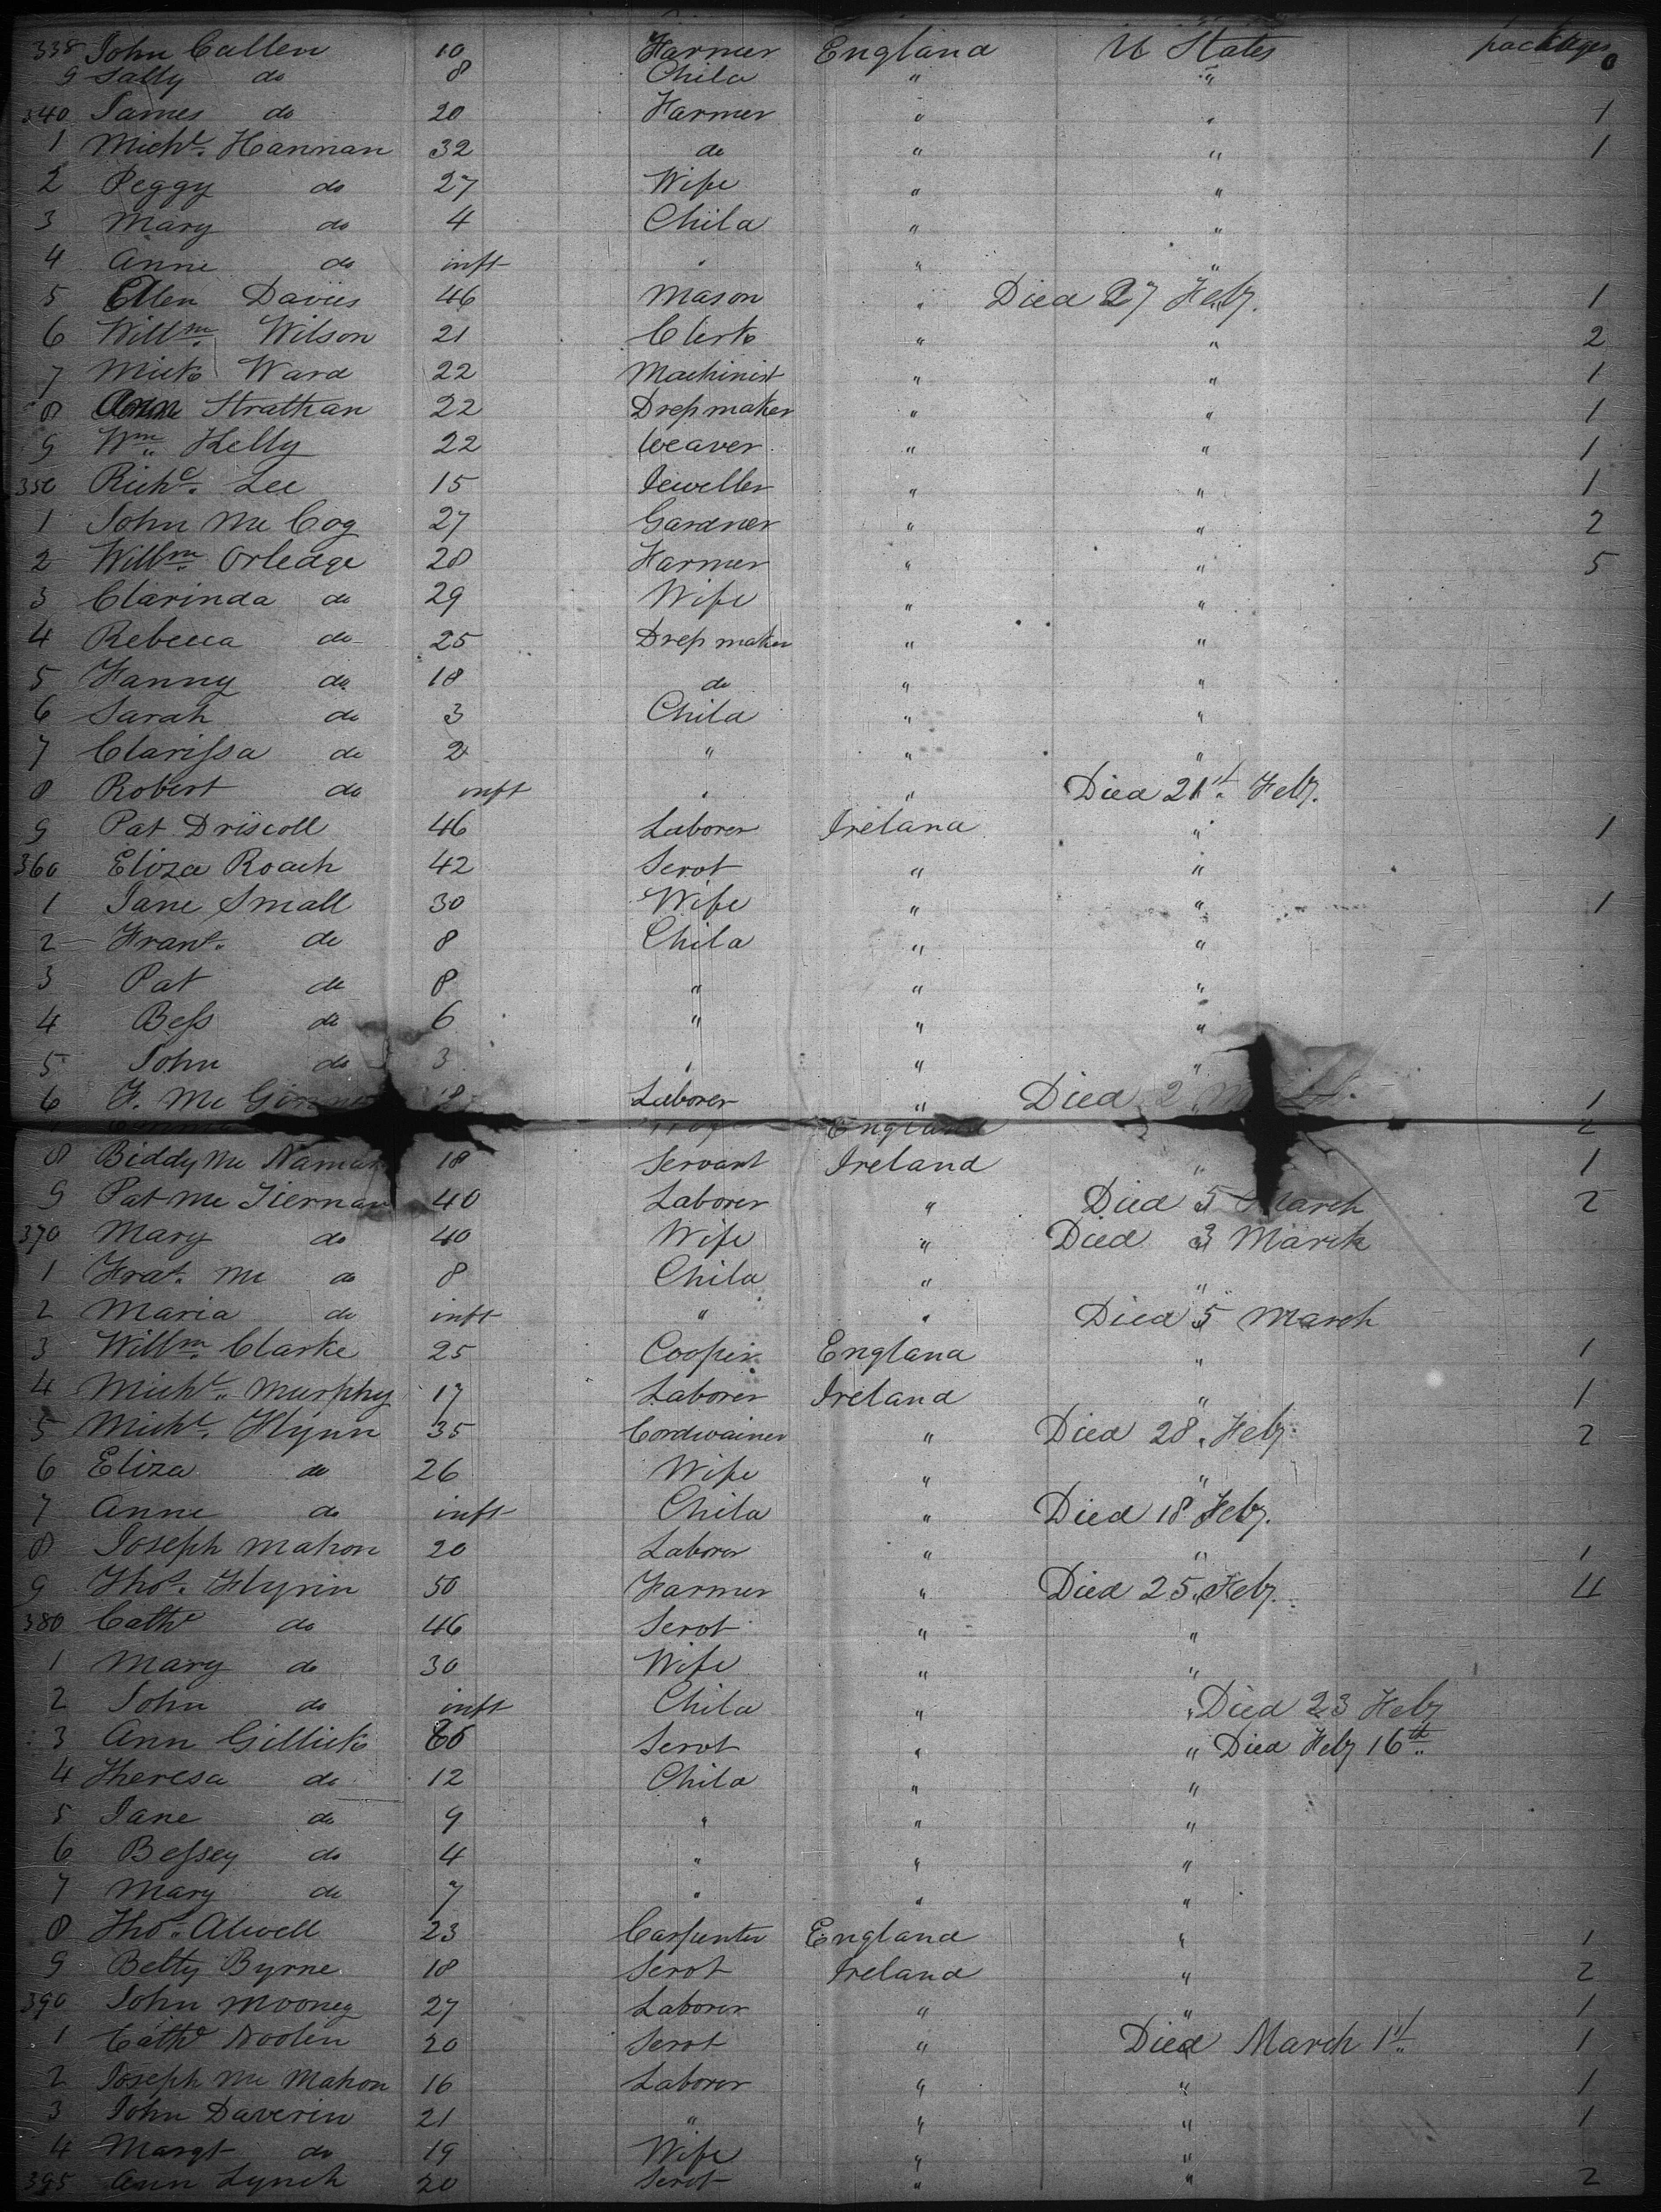 338 John Callen 10 Farmer England U States packages 0
9 Sally do 8 Child " "
340 James do 20 Farmer " " 1
1 Michl. Hannan 32 do " " 1
2 Peggy do 27 Wife " "
3 Mary do 4 Child " "
4 Anne do inft " " "
5 Ellen Davies 46 Mason " Died 27 Feby. 1
6 Willm. Wilson 21 Clerk " " 2
7 Mick Ward 22 Machinist " " 1
8 Ann Strathan 22 Dressmaker " " 1
9 Wm. Kelly 22 Weaver " " 1
350 Richd. Lee 15 Jeweller " " 1
1 John Mc Cog 27 Gardner " " 2
2 Willm. Orledge 28 Farmer " " 5
3 Clarinda do 29 Wife " "
4 Rebecca do 25 Dress maker " "
5 Fanny do 18 do " "
6 Sarah do 3 Child " "
7 Clarissa do 2 " " "
8 Robert do inft " " Died 21st. Feby.
9 Pat Driscoll 46 Laborer Ireland " 1
360 Eliza Roach 42 Servt " "
1 Jane Small 30 Wife " " 1
2 Frans. do 8 Child " "
3 Pat do 8 " " "
4 Bess do 6 " " "
5 John do 3 " " "
6 F. Mc Laborer " Died 2 1
England 2
8 Biddy Mc Namara 18 Servant Ireland " 1
9 Pat Mc Tiernan 40 Laborer " Died 5 March 2
370 Mary do 40 Wife " Died 3 March
1 Fras. Mc do 8 Child " "
2 Maria do inft " " Died 5 March
3 Willm. Clarke 25 Cooper England " 1
4 Michl. Murphy 17 Laborer Ireland " 1
5 Michl. Flynn 35 Cordwainer " Died 28. Feby. 2
6 Eliza do 26 Wife " "
7 Anne do inft Child " Died 18 Feby.
8 Joseph Mahon 20 Laborer " " 1
9 Thos. Flynn 50 Farmer " Died 25. Feby. 4
380 Cathe do 46 Servt " "
1 Mary do 30 Wife " "
2 John do inft Child " " Died 23 Feby
3 Ann Gillick 60 Servt " " Died Feby 16th.
4 Theresa do 12 Child " "
5 Jane do 9 " " "
6 Bessey do 4 " " "
7 Mary do 7 " " "
8 Thos. Alwell 23 Carpenter England " 1
9 Betty Byrne 18 Servt Ireland " 2
390 John Mooney 27 Laborer " " 1
1 Cathe Noolen 20 Servt " Died March 1st. 1
2 Joseph Mc Mahon 16 Laborer " " 1
3 John Daverin 21 " " " 1
4 Margt do 19 Wife " "
395 Ann Lynch 20 Servt " " 2